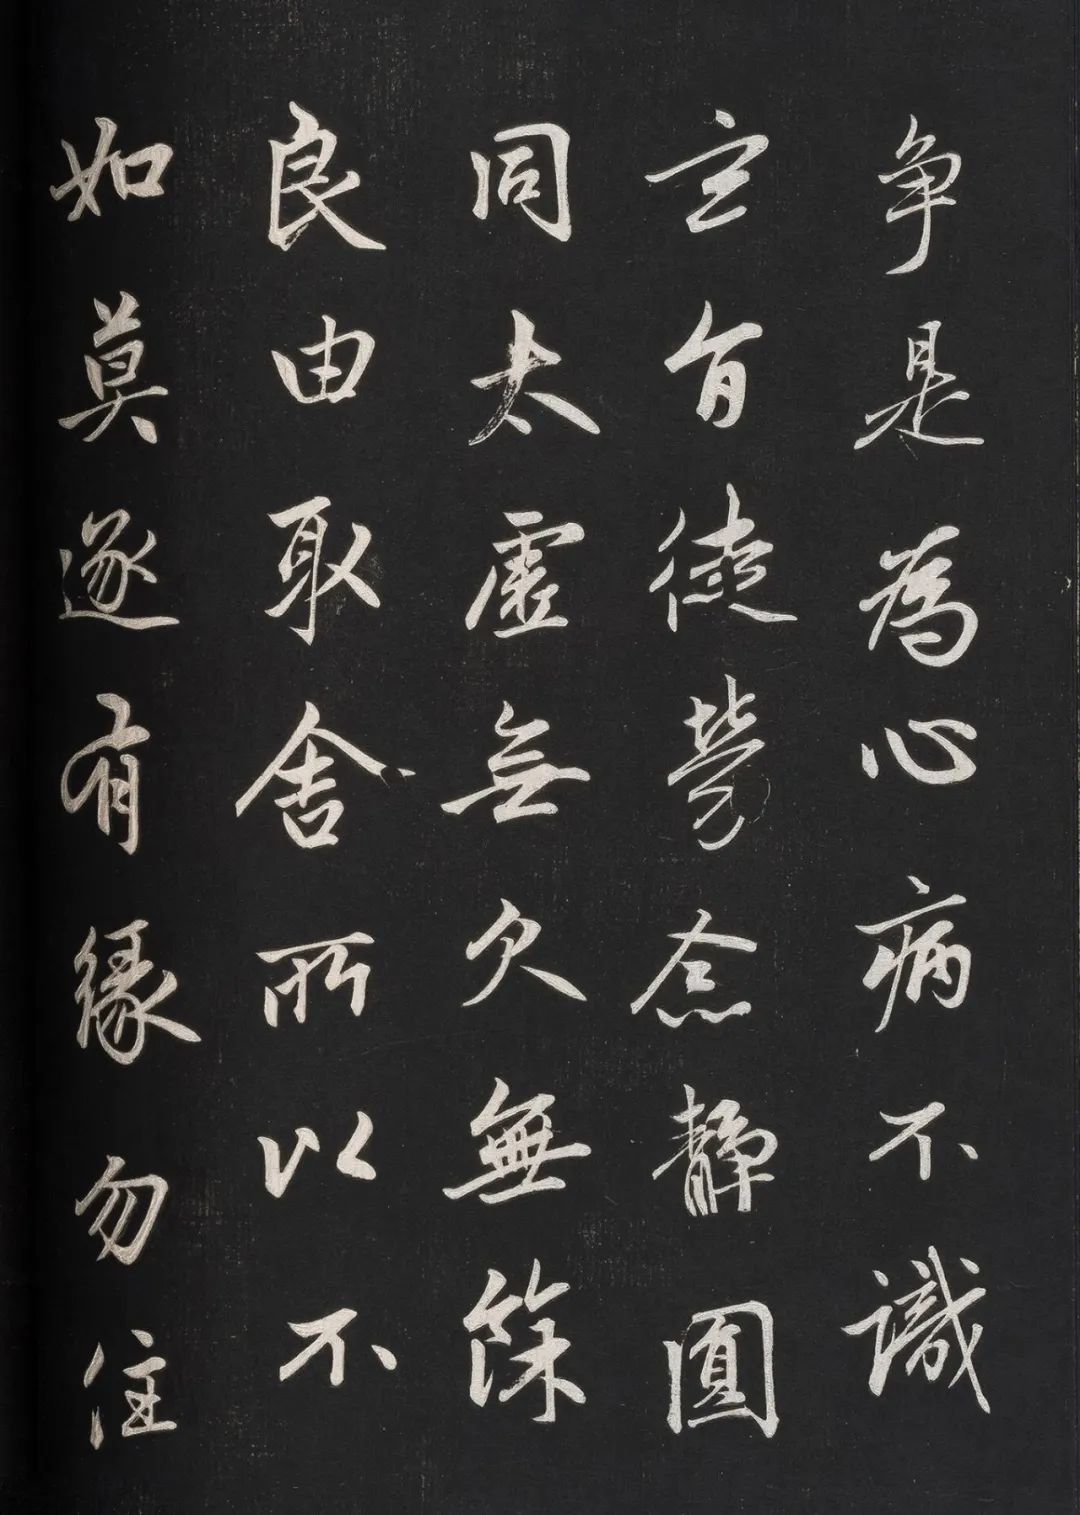 争是為心病不識
玄旨徒勞念靜圓
同太虛無欠無餘
良由取舍所以不
如莫逐有緣勿住